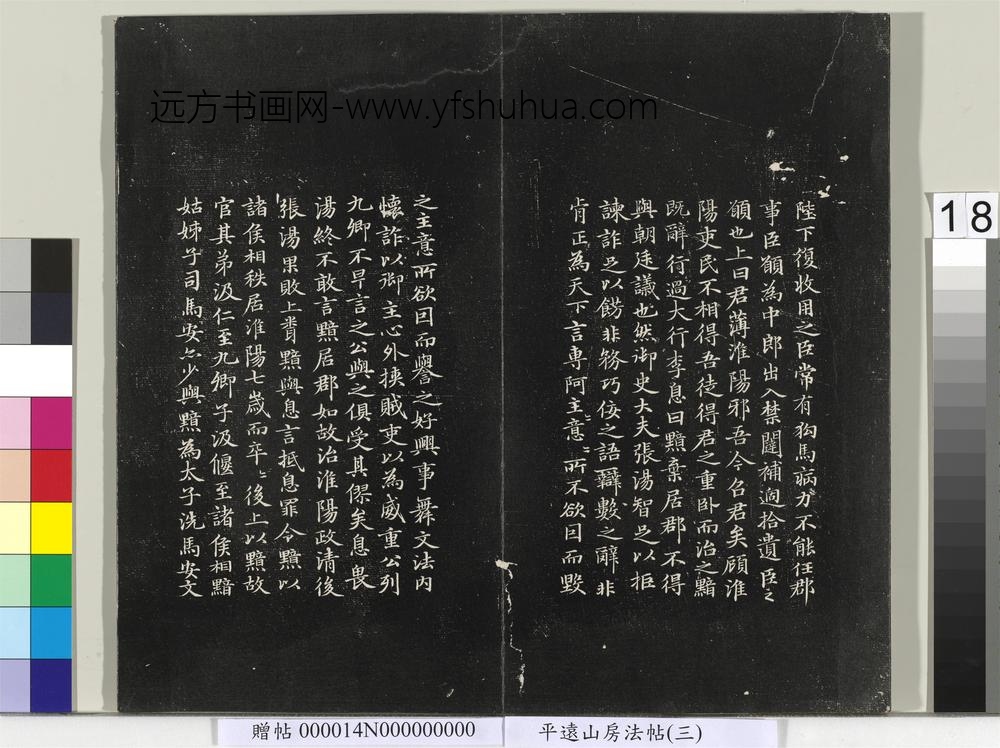 远方书画网-www.yfshuhua.com
陛下復收用之臣常有狗馬病力不能任郡
事臣願為中郎出入禁闥補過拾遺臣之
願也上曰君薄淮陽邪吾今召君矣顧淮
陽吏民不相得吾徒得君之重卧而治之黯
既辭行過大行李息曰黯棄居郡不得
與朝廷議也然御史大夫張湯智足以拒
諫詐足以餝非務巧佞之語辯數之辭非
肯正為天下言專阿主意〻所不欲因而毀
之主意所欲因而譽之好興事舞文法内
懷詐以御主心外挾賊吏以為威重公列
九卿不早言之公與之俱受其僇矣息畏
湯終不敢言黯居郡如故治淮陽政清後
張湯果敗上聞黯與息言抵息罪令黯以
諸侯相秩居淮陽七歲而卒〻後上以黯故
官其弟汲仁至九卿子汲偃至諸侯相黯
姑姊子司馬安亦少與黯為太子洗馬安文
18
贈帖 000014N000000000
平遠山房法帖(三)